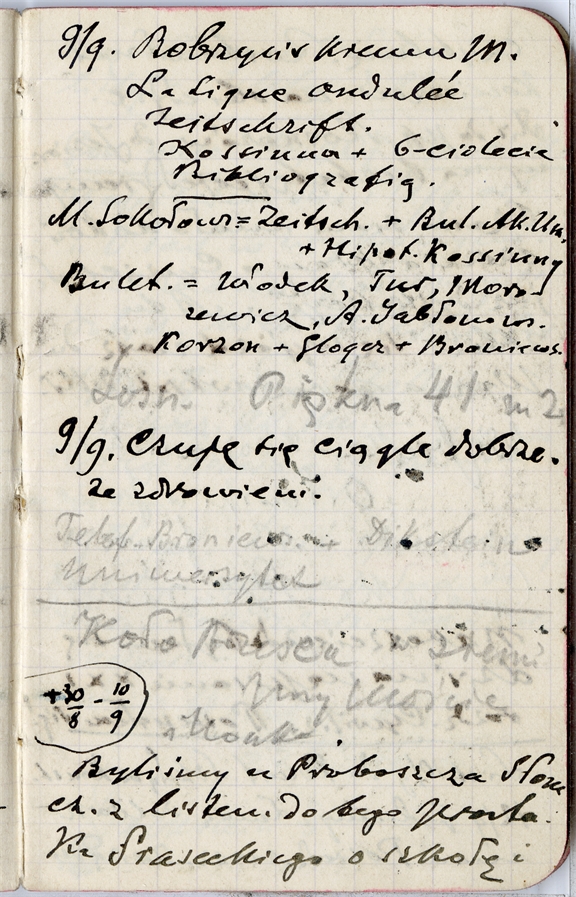 9/9. Bobrzyńs Kremm M.
La ligne ondulée
Zeitschrift.
Kossinna + 6-ciolecie
Bibliografię.
M. Sokołows = Zeitsch. + Bul. Ak. Um.
+ Hipot. Kossinny
Bulet. = Włodek, Tur, Moro-
zewicz, A. Jabłonows.
Korzon + Gloger + Broniews.
Łosn. Piękna 41 m 2
9/9. Czuję się ciągle dobrze.
ze zdrowiem.
Telef. Broniews. + Dikstein
Uniwersytet
Koło
+30/8 - 10/9
Byliśmy u Proboszcza Słom
cz. z listem do tego
Ks Siaseckiego o szkołę i